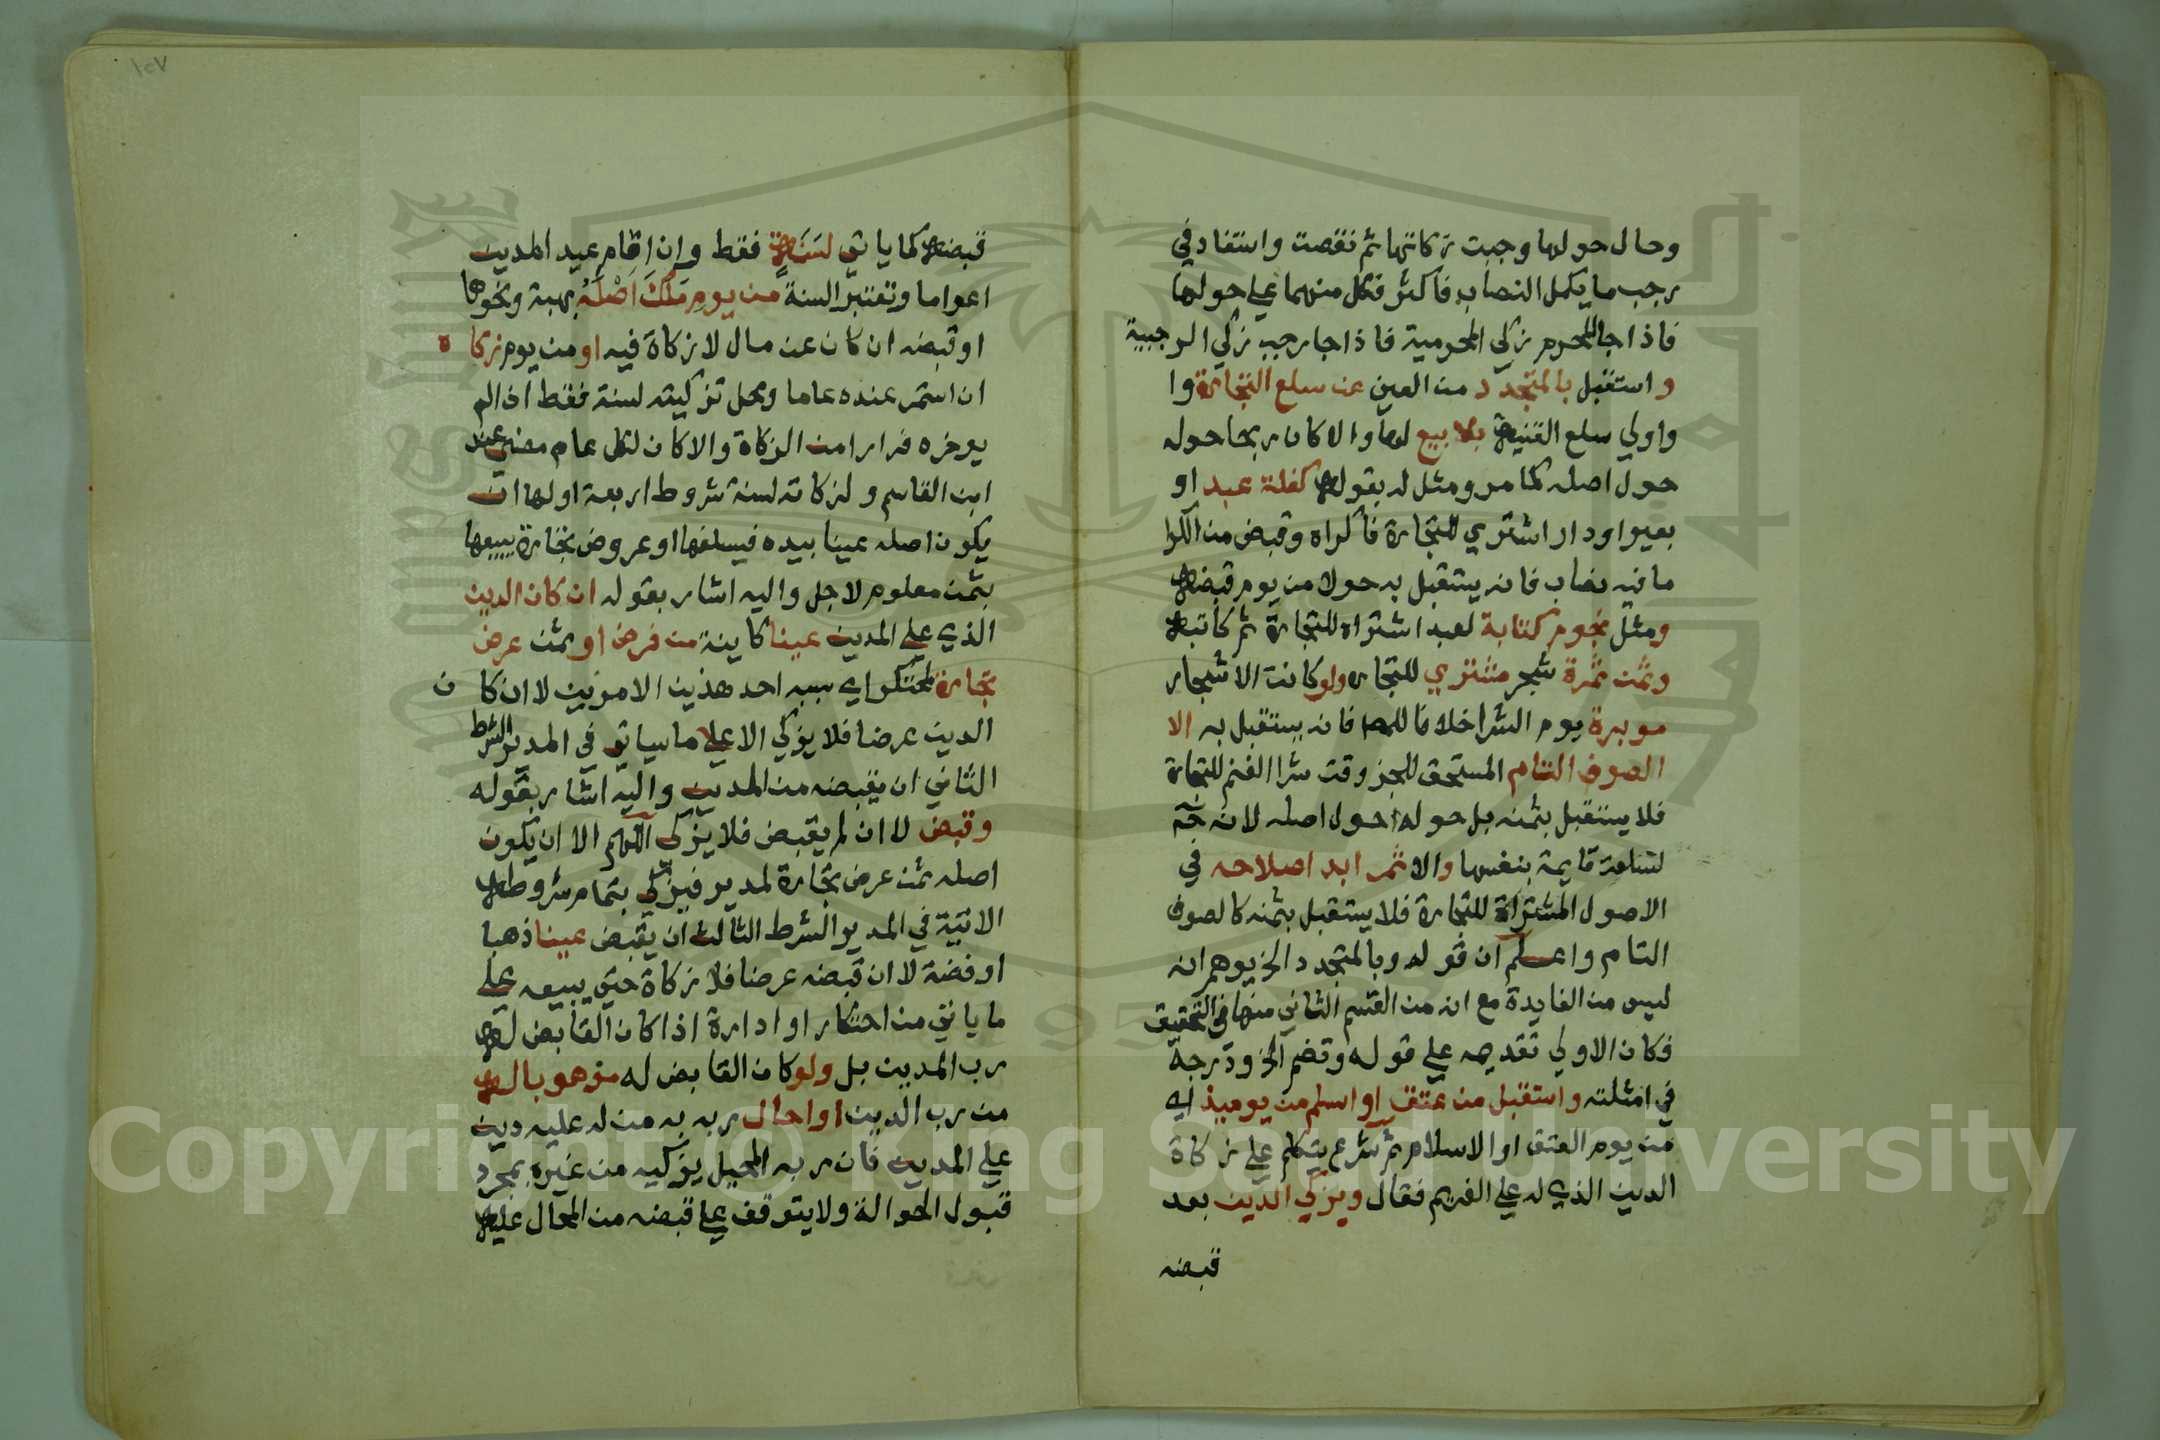 وحال حولها وجبت زكاتها ثم نقصت واستفاد في
رجب ما يكمل النصاب فاكثر فكل منهما علي حولها
فاذا جا المحرم زكي المحرمية فاذا جا رجب زكي الرجبية
واستقبل بالمتجدد من العين عن سلع التجارة وا
واولي سلع القنية بلا بيع لها والا كان ربحا حوله
حول اصله كما مر ومثل له بقوله كغلة عبد او
بعير او دار اشتري للتجارة فاكراه وقبض من الكرا
ما فيه نصاب فانه يستقبل به حولا من يوم قبضه
ومثل نجوم كتابة لعبد اشتراه للتجارة ثم كاتبه
وثمن ثمرة شجر مشتري للتجاره ولو كانت الاشجار
موبرة يوم الشرا خلافا للمص فانه يستقبل به الا
الصوف التام المستحق للجز وقت شرا الغنم للتجارة
فلا يستقبل بثمنه بل حوله حول اصله لانه ح
لسلعة قايمة بنفسها والا ثمر ابد اصلاحه في
الاصول المشتراة للتجارة فلا يستقبل بثمنه كالصوف
التام واعلم ان قوله وبالمتجدد الخ يوهم انه
ليس من الفايدة مع انه من القسم الثاني منها في التحقيق
فكان الاولي تقديمه علي قوله وتضم الخ ودرجه
في امثلته واستقبل من عتق او اسلم من يوميذ اي
من يوم العتق او الاسلام ثم شرع يتكلم علي زكاة
الدين الذي له علي الغريم فقال ويزكي الدين بعد
قبضه
١٥٧
قبضه كما ياتي لسنة فقط وان اقام عند المدين
اعواما وتعتبر السنة من يوم ملك اصله بهبة ونحوها
او قبضه ان كان عن مال لا زكاة فيه او من يوم زكاه
ان استمر عنده عاما ومحل تزكيته لسنة فقط اذا لم
يوخره فرارا من الزكاة والا كان لكل عام مضي عند
ابن القاسم ولزكاته لسنة شروط اربعة اولها ان
يكون اصله عينا بيده فيسلفها او عروض تجارة يبيعها
بثمن معلوم لاجل واليه اشار بقوله ان كان الدين
الذي علي المدين عينا كاينة من قرض او ثمن عرض
تجارة لمحتكر اي سببه احد هذين الامرين لا ان كان
الدين عرضا فلا يزكي الا علي ما سياتي في المدير الشرط
الثاني ان يقبضه من المدين واليه اشار بقوله
وقبض لا ان لم يقبض فلا يزكي اللهم الا ان يكون
اصله ثمن عرض تجارة لمدير فيزكي بتمام شروطه
الاتية في المدير الشرط الثالث ان يقبض عينا ذهبا
او فضة لا ان قبضه عرضا فلا زكاة حتي يبيعه علي
ما ياتي من احتكار او ادارة اذا كان القابض له
رب المدين بل ولو كان القابض له موهوبا له
من رب الدين او احال ربه به من له عليه دين
علي المدين فان ربه المحيل يزكيه من غيره بمجرد
قبول الحوالة ولا يتوقف علي قبضه من المحال عليه
Copyright © King Saud University